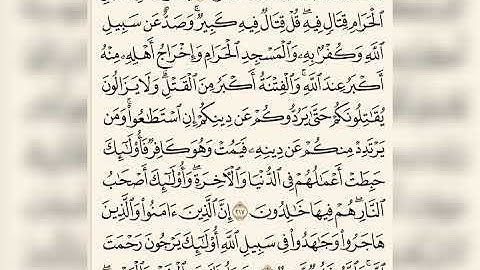 ٱلۡحَرَامِ قِتَالٖ فِيهِۖ قُلۡ قِتَالٞ فِيهِ كَبِيرٞۚ وَصَدٌّ عَن سَبِيلِ
ٱللَّهِ وَكُفۡرُۢ بِهِۦ وَٱلۡمَسۡجِدِ ٱلۡحَرَامِ وَإِخۡرَاجُ أَهۡلِهِۦ مِنۡهُ
أَكۡبَرُ عِندَ ٱللَّهِۚ وَٱلۡفِتۡنَةُ أَكۡبَرُ مِنَ ٱلۡقَتۡلِۗ وَلَا يَزَالُونَ
يُقَٰتِلُونَكُمۡ حَتَّىٰ يَرُدُّوكُمۡ عَن دِينِكُمۡ إِنِ ٱسۡتَطَٰعُواْۚ وَمَن
يَرۡتَدِدۡ مِنكُمۡ عَن دِينِهِۦ فَيَمُتۡ وَهُوَ كَافِرٞ فَأُوْلَٰٓئِكَ
حَبِطَتۡ أَعۡمَٰلُهُمۡ فِي ٱلدُّنۡيَا وَٱلۡأٓخِرَةِۖ وَأُوْلَٰٓئِكَ أَصۡحَٰبُ
ٱلنَّارِۖ هُمۡ فِيهَا خَٰلِدُونَ ٢١٧ إِنَّ ٱلَّذِينَ ءَامَنُواْ وَٱلَّذِينَ
هَاجَرُواْ وَجَٰهَدُواْ فِي سَبِيلِ ٱللَّهِ أُوْلَٰٓئِكَ يَرۡجُونَ رَحۡمَتَ